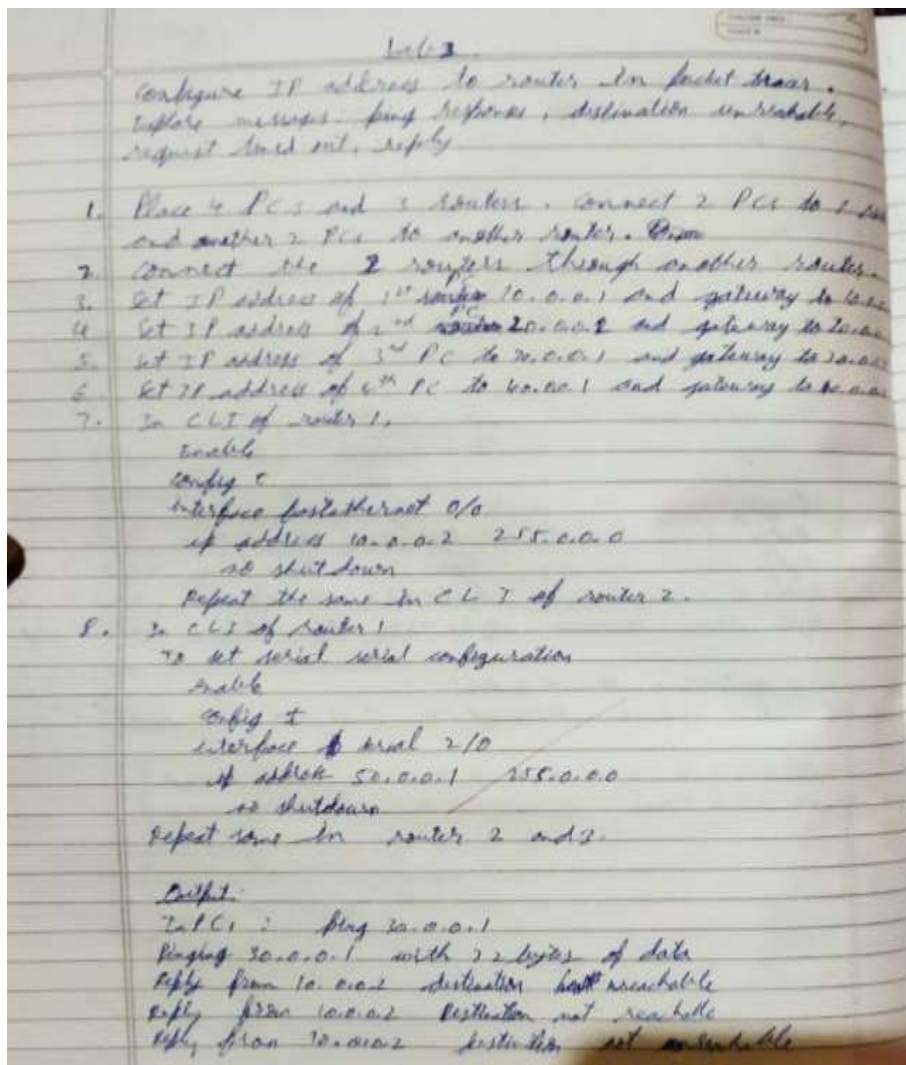 Lab-3
Configure IP address to router in packet tracer.
Explore messages: ping response, destination unreachable,
request timed out, reply
1. Place 4 PCs and 3 routers. Connect 2 PCs to 1
and another 2 PCs to another router.
2. Connect the 2 routers through another router.
3. Set IP address of 1st PC 10.0.0.1 and gateway to
4 Set IP address of 2nd PC 20.0.0.1 and gateway to
5. Set IP address of 3rd PC to 30.0.0.1 and gateway to
6 Set IP address of 4th PC to 40.0.0.1 and gateway to
7. In CLI of router 1,
Enable
config t
interface fastethernet 0/0
ip address 10.0.0.2 255.0.0.0
no shut down
Repeat the same in CLI of router 2.
8. In CLI of router 1
To set serial serial configuration
Enable
config t
interface serial 2/0
ip address 50.0.0.1 255.0.0.0
no shutdown
Repeat same in router 2 and 3.
Output:
In PC1 : ping 30.0.0.1
Pinging 30.0.0.1 with 32 bytes of data
Reply from 10.0.0.2 destination host unreachable
Reply from 10.0.0.2 Destination not reachable
Reply from 10.0.0.2 destination not